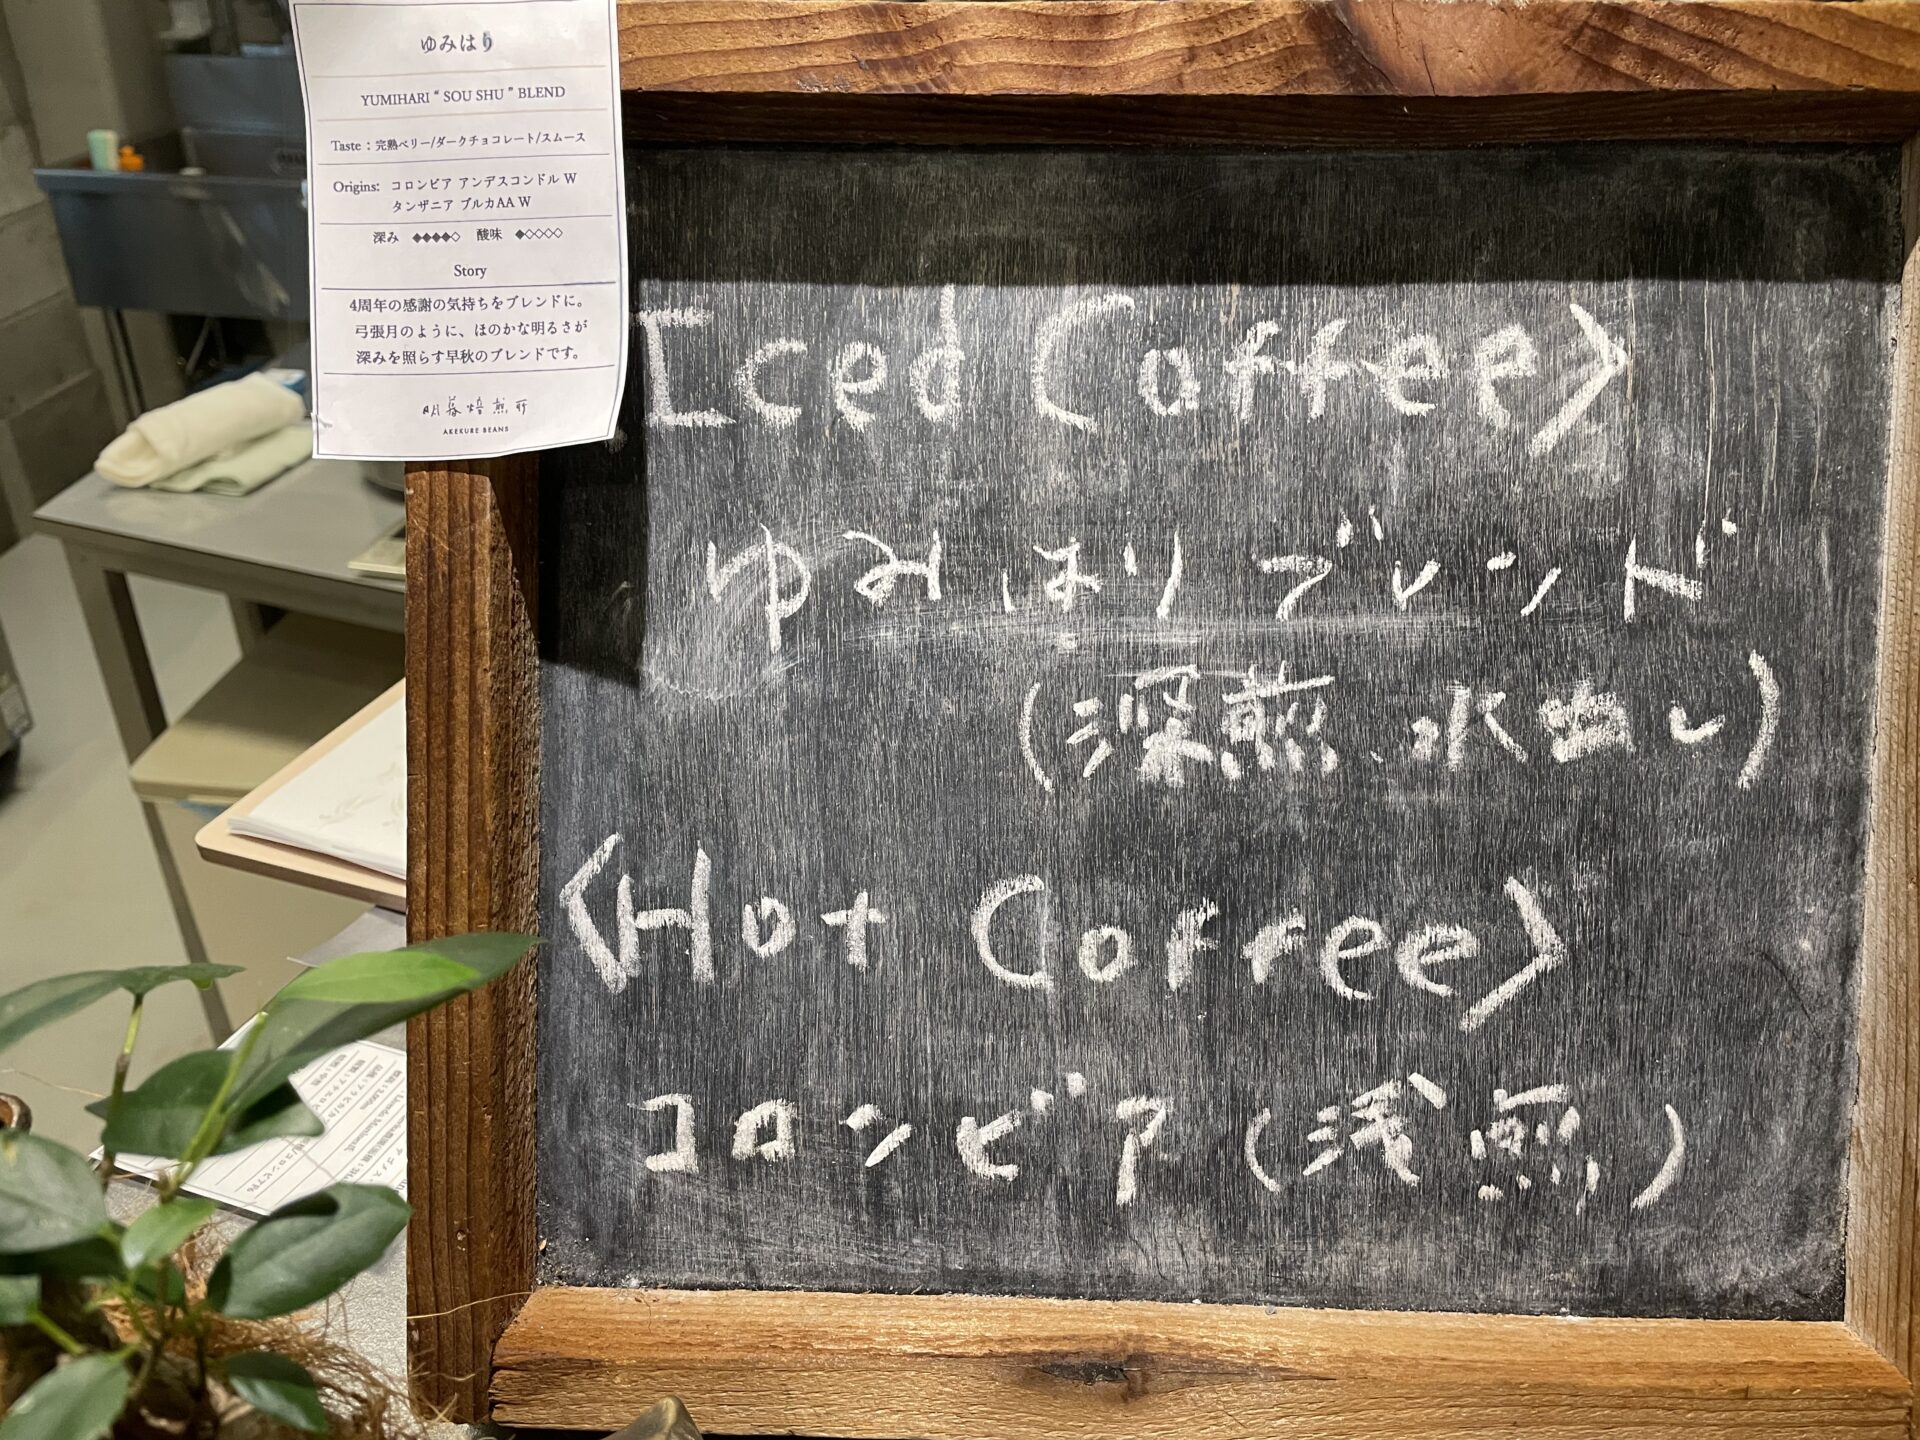 ゆみはり
YUMIHARI “ SOU SHU ” BLEND
Taste : 完熟ベリー/ダークチョコレート/スムース
Origins: コロンビア アンデスコンドル W
タンザニア ブルカAA W
深み ◆◆◆◆◇ 酸味 ◆◇◇◇◇
Story
4周年の感謝の気持ちをブレンドに。
弓張月のように、ほのかな明るさが
深みを照らす早秋のブレンドです。
明暮焙煎所
AKEKURE BEANS
Iced Coffee〉
ゆみはりブレンド
(深煎、水出し)
〈Hot Coffee〉
コロンビア (浅煎)